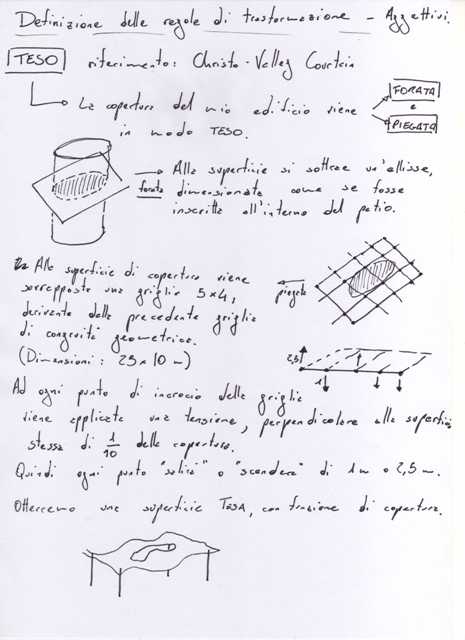 Definizione delle regole di trasformazione - Aggettivi.
TESO riferimento: Christo - Valley Courtain
FORATA
La copertura del mio edificio viene e
in modo TESO. PIEGATA
Alla superficie si sottrae un'ellisse,
forata dimensionata come se fosse
inscritta all'interno del patio.
Alla superficie di copertura viene
sovrapposta una griglia 5x4, piegata
derivante dalla precedente griglia
di congruità geometrica.
(Dimensioni: 25x10 m) 2,5
1
Ad ogni punto di incrocio della griglia
viene applicata una tensione, perpendicolare alla superficie
stessa di 1/10 della copertura.
Quindi ogni punto "salirà" o "scenderà" di 1 m o 2,5 m.
Otterremo una superficie TESA, con funzione di copertura.